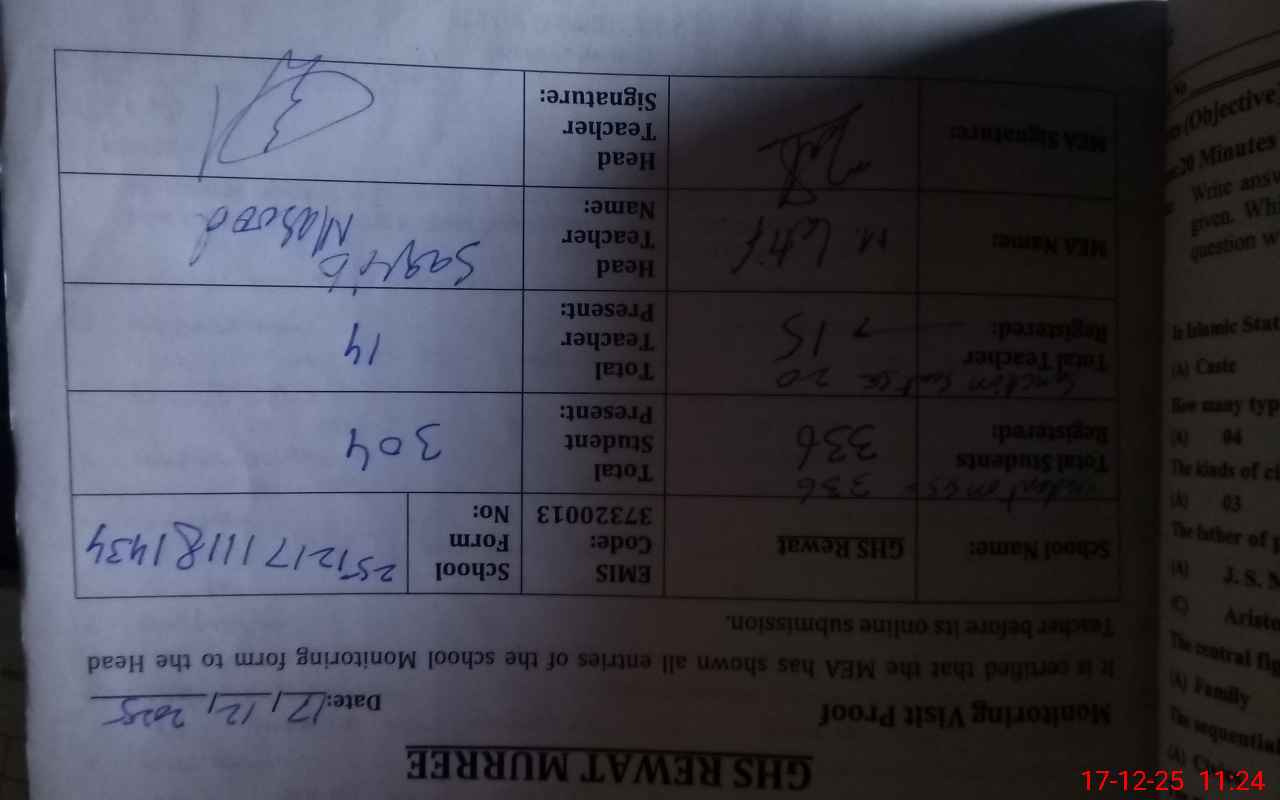 GHS REWAT MURREE
Monitoring Visit Proof
Date: 17/12/2025
It is certified that the MEA has shown all entries of the school Monitoring form to the Head
Teacher before its online submission.
School Name: GHS Rewat EMIS Code: 37320013 School Form No:
336
Total Students Registered: 336 Total Student Present: 304
Sanction 20
Total Teacher Registered: 15 Total Teacher Present: 14
MEA Name: M. Head Teacher Name: Saqib Masood
MEA Signature: Head Teacher Signature:
(Objective
20 Minutes
Write answ
given. Whi
question w
Islamic Stat
(A) Caste
How many typ
(A) 04
The kinds of ci
(A) 03
The father of p
(A) J. S. M
(C) Aristo
The central fig
(A) Family
The sequential
17-12-25 11:24